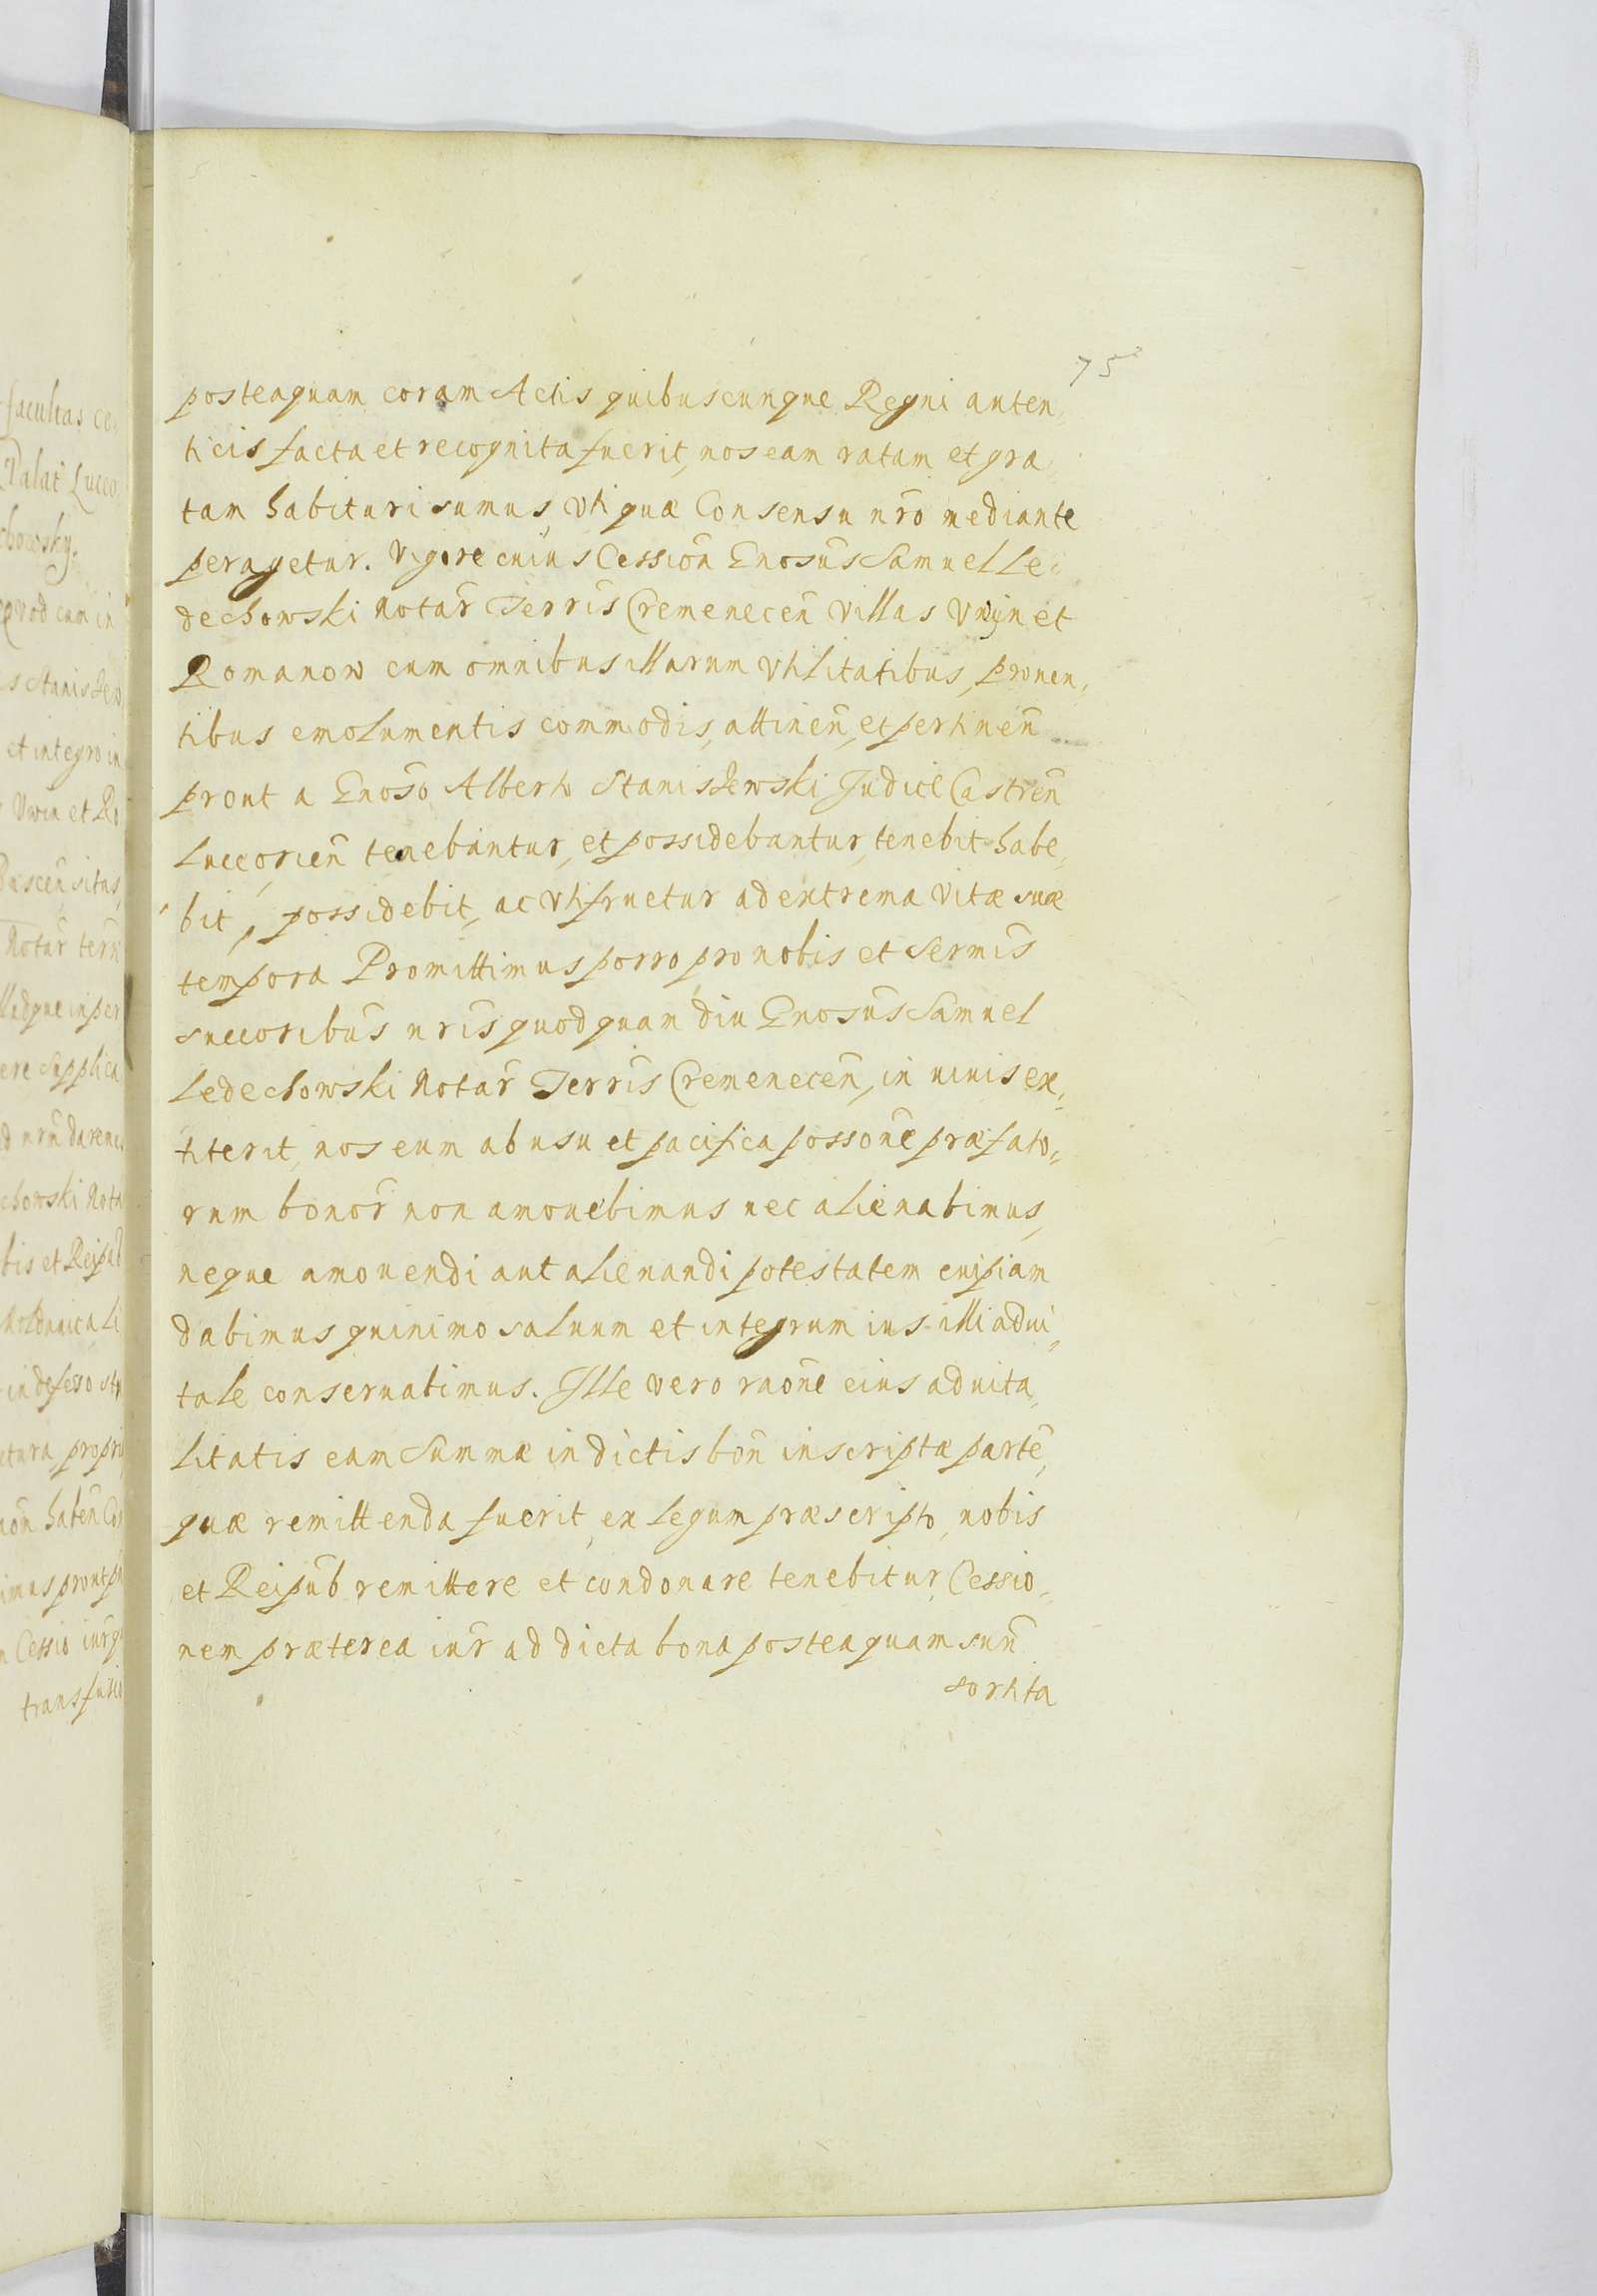 75
posteaquam coram Actis quibuscunque Regni auten,
ticis facta et recognita fuerit, nos eam ratam et gra
tam habituri sumus, vti quæ Consensu nr̃o mediante
peragetur. Vigore cuius Cession̄ Gnosūs Samuel Le,
dechowski Notar̄ Terrīs Cremenecen̄ Villas Vwyn et
Romanow cum omnibus illarum vtilitatibus, prouen,
tibus emolumentis commodis, attinen̄, et pertinen̄
prout a Gnōso Alberto Staniszewski Judice Castren̄
Luceorien̄ tenebantur, et possidebantur, tenebit habe,
bit, possidebit, ac vtifruetur ad extrema vitæ suæ
tempora Promittimus porro pro nobis et Sermīs
succoribūs nrīs quod quam diu Gnosūs Samuel
Ledechowski Notar̄ Terrīs Cremenecen̄, in uiuis ex,
titerit, nos eum ab usu et pacifica possōne præfato,
rum bonor̄ non amouebimus nec alienabimus,
neque amouendi aut alienandi potestatem cuipiam
dabimus quinimo saluum et integrum ius illi adui,
tale conseruabimus. Jlle vero raōne eius aduita,
litatis eam Summæ in dictis bon̄ inscriptæ partē,
quæ remittenda fuerit, ex legum præscripto, nobis
et Reipub̄ remittere et condonare tenebitur, Cessio,
nem præterea iur̄ ad dicta bona posteaquam suū
sortita
facultas ce,
Palat̄ Luceo
chowsky.
Quod cum in
et integro in
Vwin et Ro
sitas,
Notar̄ terr̄
ere supplica
chowski Nota
bis et Reipub̄
Cessio iur̄
transfusio